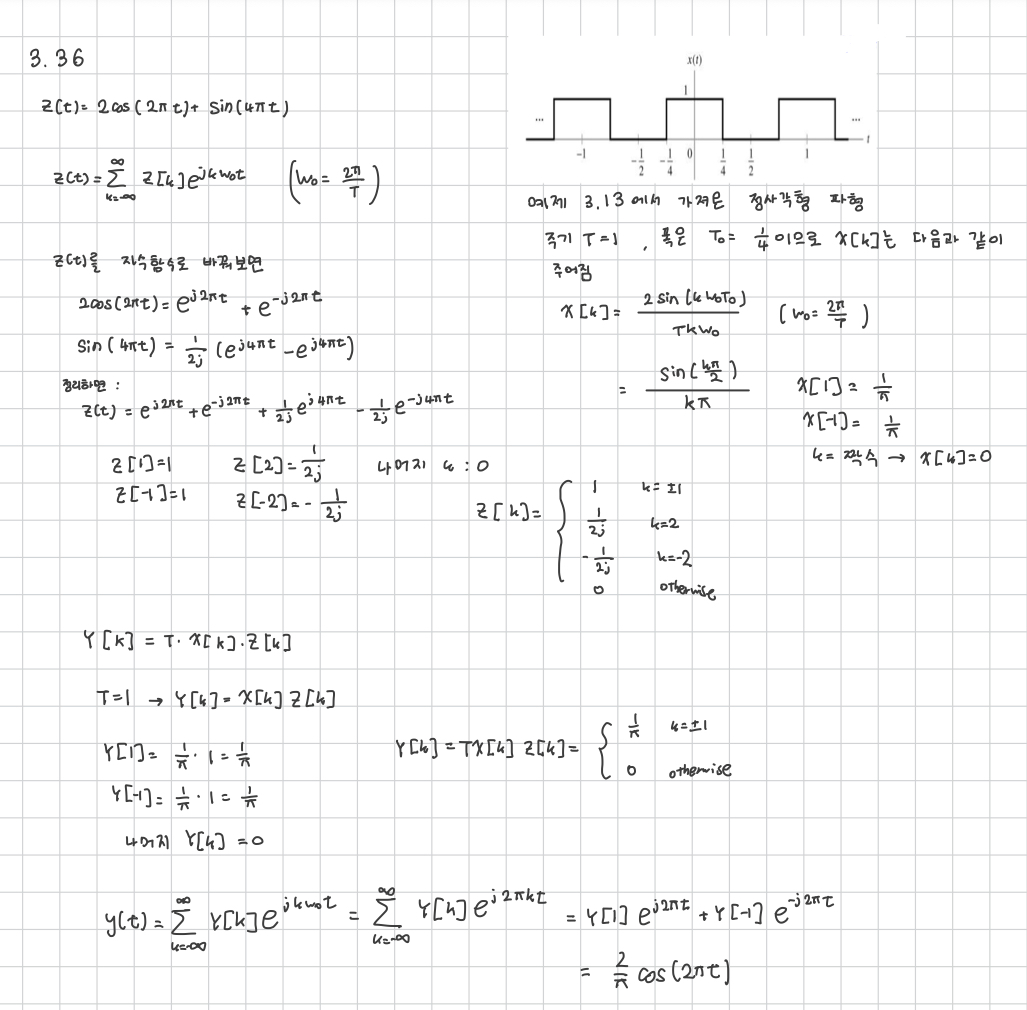 3.36
z(t) = 2cos(2πt) + sin(4πt)
z(t) = ∑_{k=-∞}^{∞} Z[k]e^{jkw₀t} (w₀ = 2π/T)
z(t)를 지수함수로 바꿔보면
2cos(2πt) = e^{j2πt} + e^{-j2πt}
sin(4πt) = 1/2j (e^{j4πt} - e^{j4πt})
정리하면 :
z(t) = e^{j2πt} + e^{-j2πt} + 1/2j e^{j4πt} - 1/2j e^{-j4πt}
Z[1]=1 Z[2]=1/2j 나머지 k : 0
Z[-1]=1 Z[-2]=-1/2j
x(t)
1
... ...
t
-1 -1/2 -1/4 0 1/4 1/2 1
예제 3.13에서 가져온 정사각형 파형
주기 T=1, 폭은 T₀=1/4이므로 X[k]는 다음과 같이
주어짐
X[k] = 2sin(kw₀T₀)/Tkw₀ (w₀ = 2π/T)
= sin(kπ/2)/kπ X[1] = 1/π
X[-1] = 1/π
k=짝수 → X[k]=0
Z[k] = { 1 k=±1
1/2j k=2
-1/2j k=-2
0 otherwise
Y[k] = T·X[k]·Z[k]
T=1 → Y[k] = X[k]Z[k]
Y[1] = 1/π · 1 = 1/π
Y[-1] = 1/π · 1 = 1/π
나머지 Y[k] = 0
Y[k] = TX[k]Z[k] = { 1/π k=±1
0 otherwise
y(t) = ∑_{k=-∞}^{∞} Y[k]e^{jkw₀t} = ∑_{k=-∞}^{∞} Y[k]e^{j2πkt} = Y[1]e^{j2πt} + Y[-1]e^{-j2πt}
= 2/π cos(2πt)